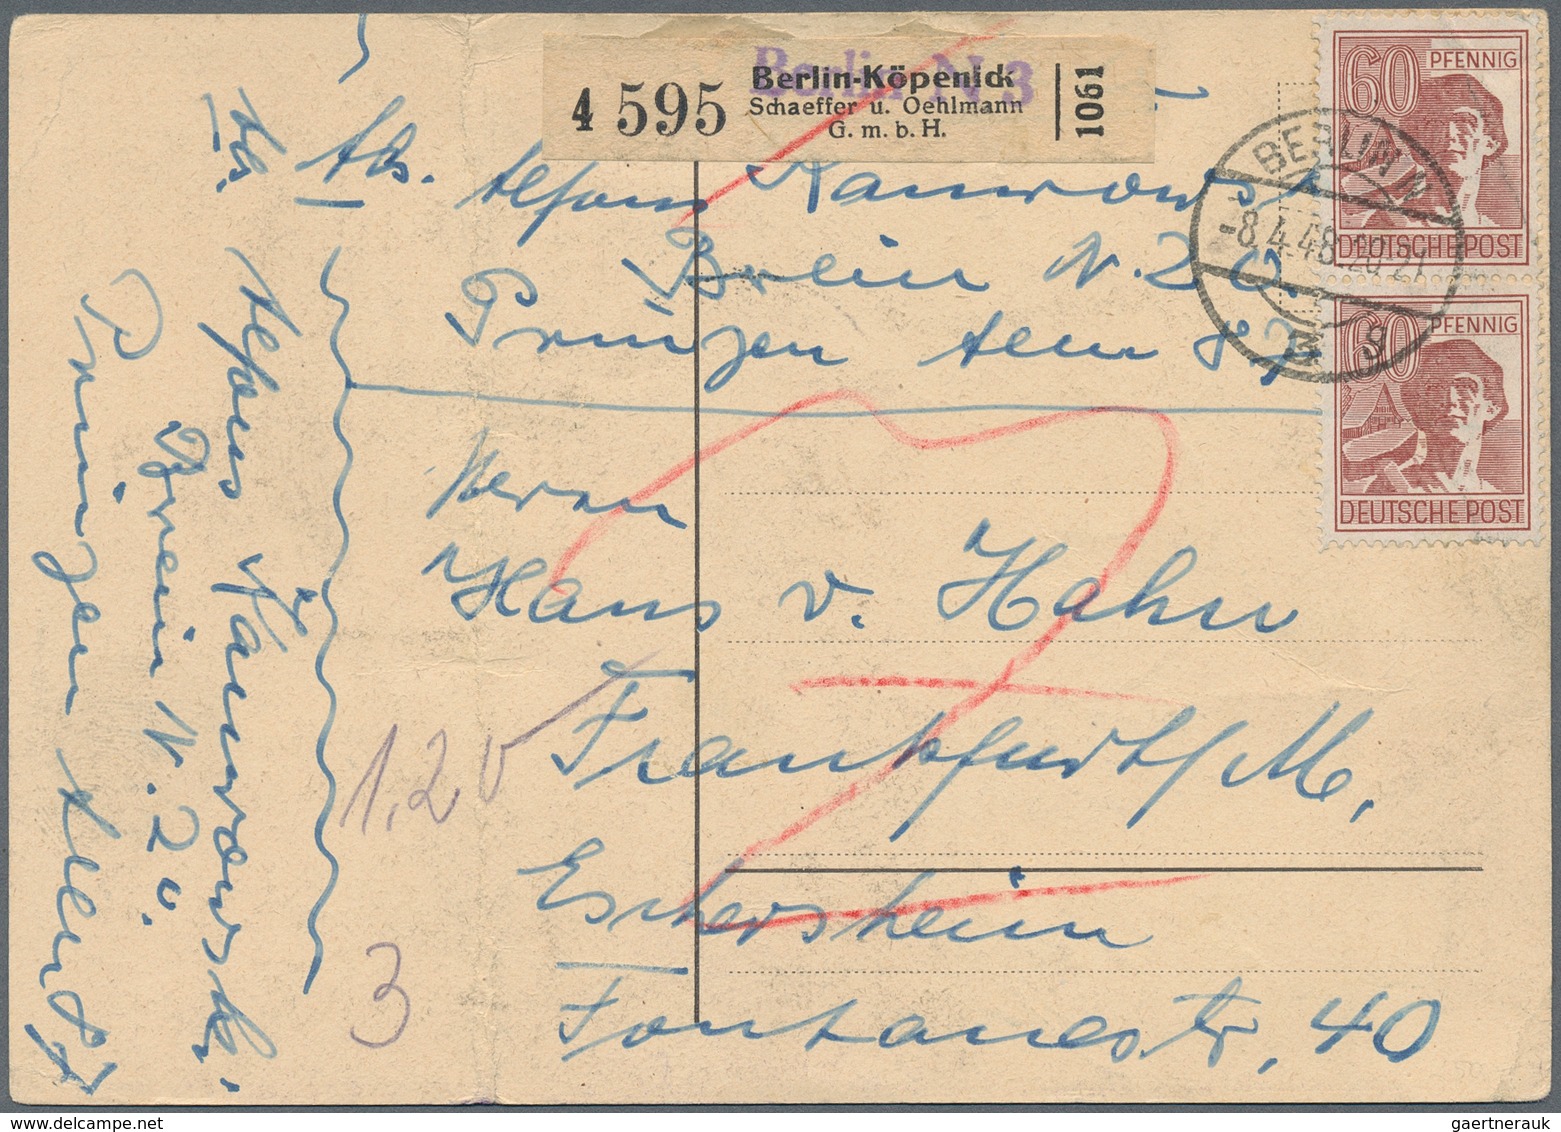 Berlin N 3
4 595
Berlin-Köpenick
Schaeffer u. Oehlmann
G. m. b. H.
1061
60 PFENNIG
DEUTSCHE POST
60 PFENNIG
DEUTSCHE POST
BERLIN N
-8.4.48.20-21
Abs. Alfons
Berlin N. 20.
Prinzen
Herrn
Hans v. Hahn
Frankfurt/M,
Eschersheim
Fontanestr. 40
1,20
3
Alfons
Berlin N. 20.
Prinzen
gaertnerauk